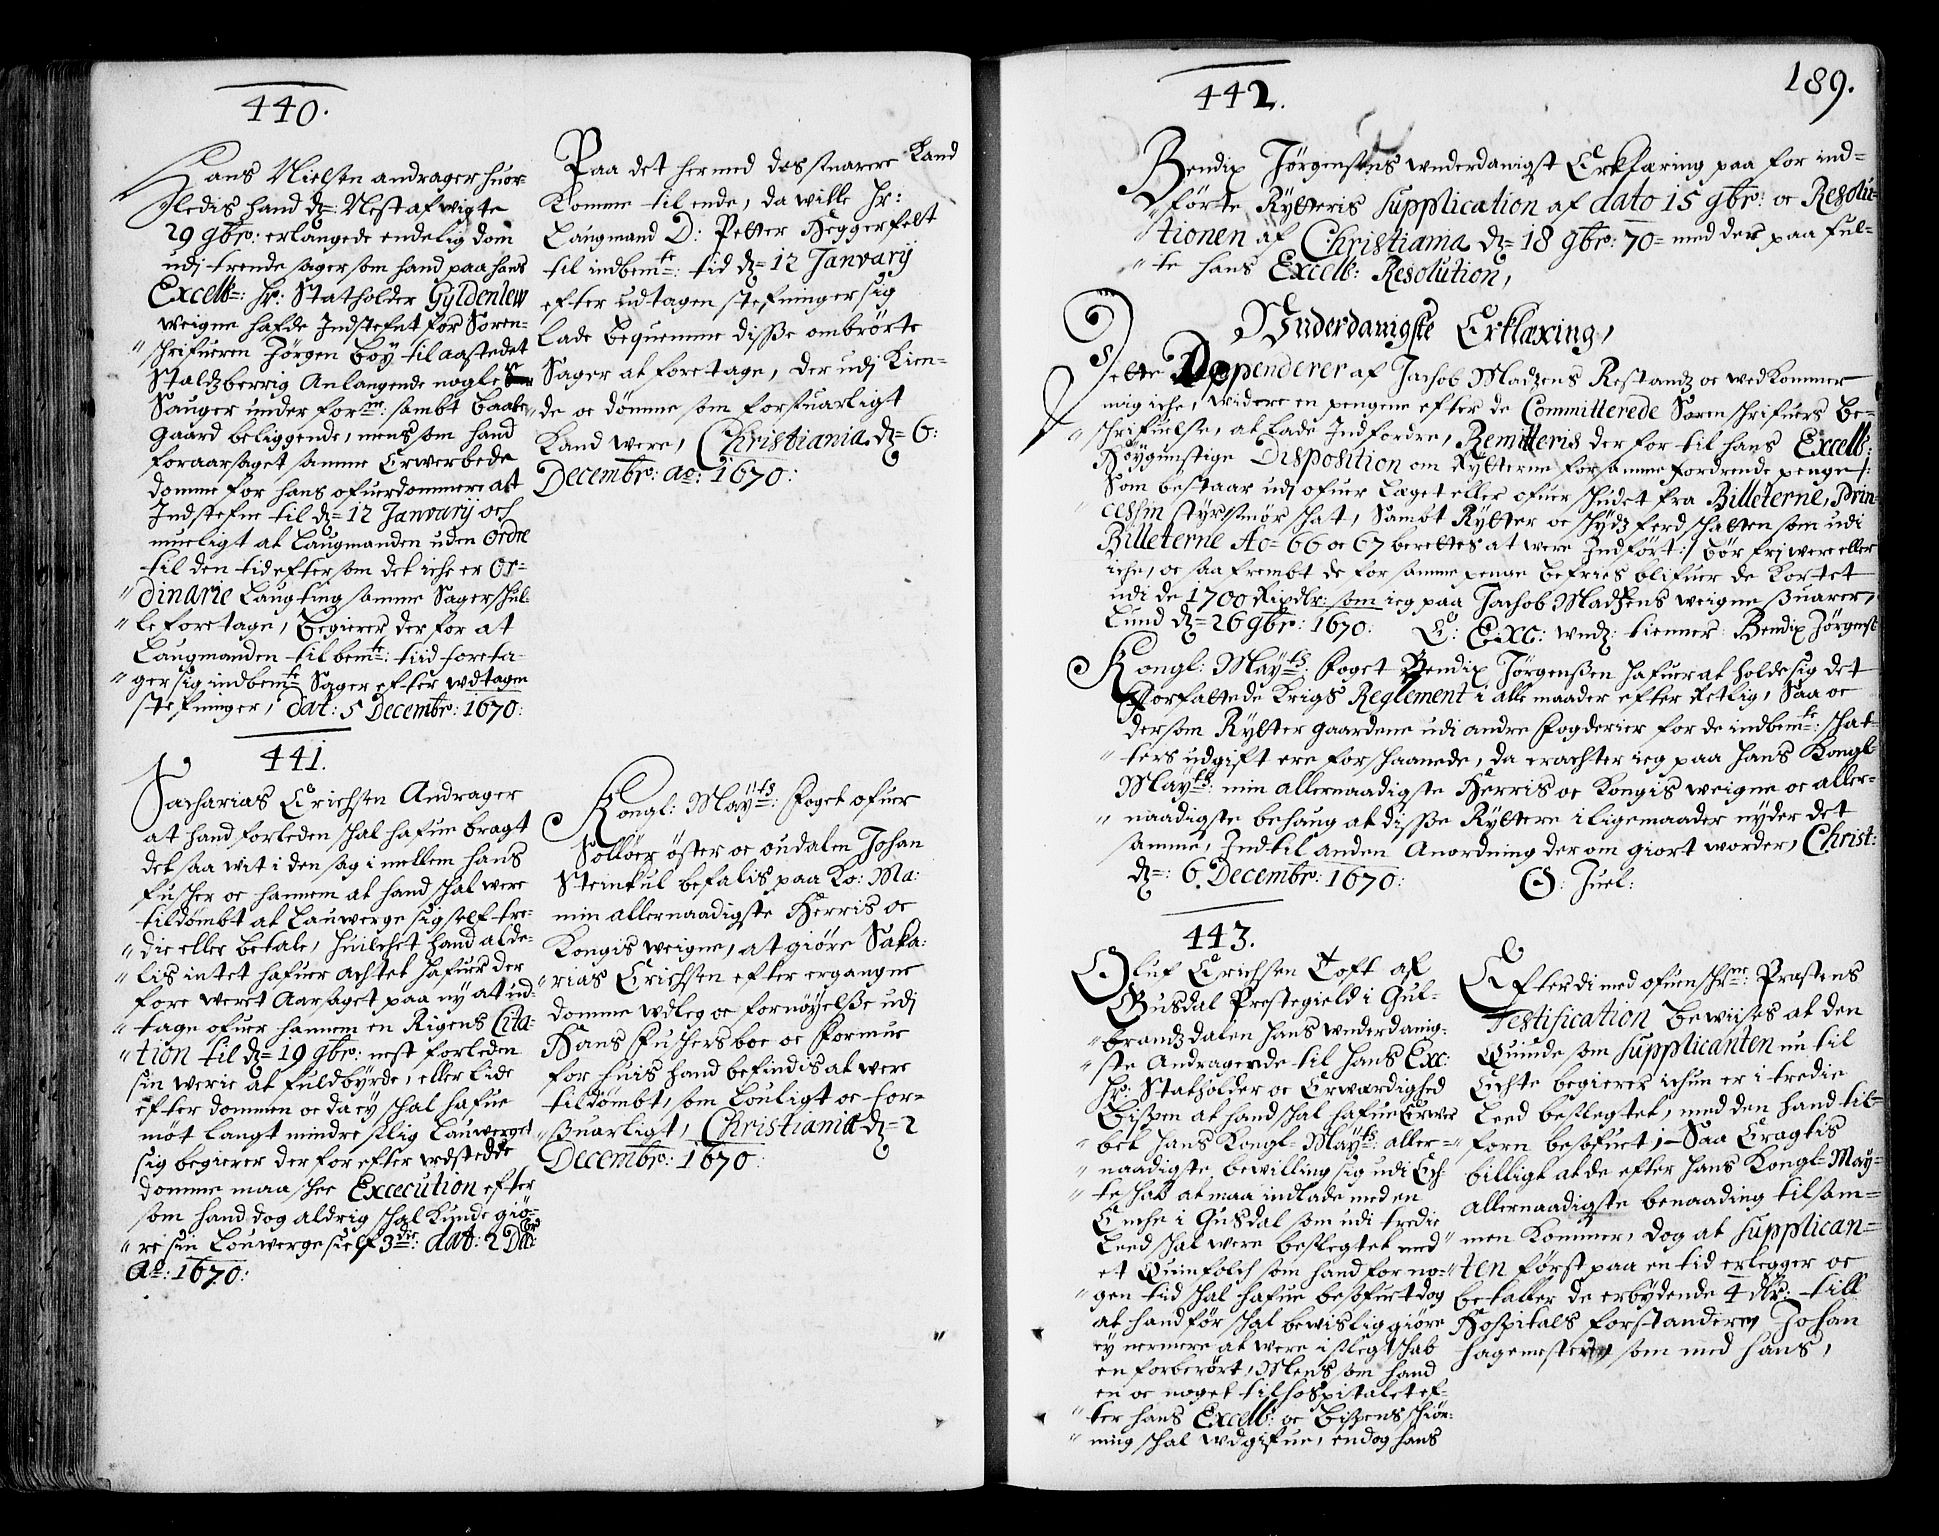 440.
Hans Nielsen andrager huor-
ledis hand dz: Nestafwigte
29 9br: erlangede endelig dom
udj trende sager som hand paa hans
Excell: Hr: Statholder Gyldenlew
weigne hafde Indstefnt for Soren-
schrifueren Jörgen Boy til aastedet
Staldzberrig Anlangende nogle
Sauger under for.ne: sambt
gaard beliggende, mens som hand
foraarsaget samme Erwerbede
domme for hans ofuerdommere att
Indstefne til dz= 12 Janvarij och
mueligt at Laugmanden uden Ordre
til den tid eftersom det iche er Or-
dinarie Laugting samme Sager schul-
le foretage, Begierer der for at
Laugmanden til bem.te: tiid foreta-
ger sig indbem.te Sager efter wdtagen
stefninger, dat: 5 Decembr: 1670:
Paa det hermed des snarere Kand
Komme til ende, da wille Hr:
Laugmand D: Petter Heggerfelt
til indbem.te: tid dz= 12 Janvarij
efter udtagen stefninger sig
lade bequemme disse ombrörte
Sager at foretage, der udj Kien-
de oc dömme som forsuarligt
Kand were, Christiania dz= 6:
Decembr: Ao: 1670:
441.
Sacharias Erichsen Andrager
at hand forleden schal hafue bragt
det saa wit i den sag imellem hans
Fuscher oc hannem at hand schal were
tildömbt at Lauwerge sig self tre-
die eller betale, huilchet hand alde-
lis intet hafuer achtet hafuer der
fore weret Aarsaget paa ny at ud-
tage ofuer hannem en Rigens Cita-
tion til dz= 19 9br: nest forleden
sin werie at fuldbyrde, eller lide
efter dommen oc da ey schal hafue
möt langt mindre slig Lauwerget
sig begierer der for efter wdstedde
domme maa schee Excecution efter
som hand dog aldrig schal Kunde giö-
re sin Louwerge sielf 3die: dat: 2 Dec:
Ao: 1670:
Kongl: Maÿ.ts: Foget ofuer
Sollöer öster oc oudalen Johan
Steinkul befalis paa Ko: Ma:
min allernaadigste Herris oc
Kongis weigne, at giöre Saka-
rias Erichsen efter ergangne
domme wdleg oc fornöyelsse udj
Hans Fuschers boe oc Formue
for huis hand befindis at were
tildömbt, som louligt oc for-
suarligt, Christiania dz= 2
Decembr: 1670:
189.
442.
Bendix Jörgensens wnderdanigst Erklæring paa for ind-
förte Rytteris Supplication af dato 15 9br: oc Resolu-
tionen af Christiania dz= 18 9br: 70= med der paa ful-
te hans Excell: Resolution,
Wnderdanigste Erklæring,
Dette Dependerer af Jachob Madzens Restandz oc wedkommer
mig iche, widere en pengene efter de Committerede Soren schrifuers be-
schrifuelse, at lade Indfordre, Remitteris der for til hans Excell:
Höygunstige Disposition om Rytterne for samme fordrende penge /:
Som bestaar udj ofuer Læget eller ofuer schudet fra Billeterne, Prin-
cessin styr, smör schat, Sambt Rytter oc schydz ferd schatten som udi
Billeterne Ao= 66 oc 67 berettes at were Indfört :/ bör fri were eller
iche, oc saa frembt de for samme penge befries blifuer de Kortet
udi de 1700 Rixdlr: som ieg paa Jachob Madzens weigne suarer,
Lund dz= 26 9br: 1670: E: Exc: wndz: tienner Bendix Jörgens:
Kongl: Maÿ.ts Foget Bendix Jörgenssen hafuer at holde sig det
Forfattede Krigs Reglement i alle maader efter Retlig, Saa oc
dersom Rytter gaardene udi andre Fogderier for de indbem.te: schat-
ters udgift ere forschaanede, da erachter ieg paa hans Kongl:
Maÿ.ts: min allernaadigste Herris oc Kongis weigne oc aller-
naadigste behaug at disse Ryttere i ligemaader nyder det
samme, Indtil anden Anordning der om giort worder, Christ:
dz=: 6. Decembr: 1670: O: Juel:
443.
Oluf Erichsen Toft af
Gusdal Prestegield i Gul-
brandzdalen hans wnderdanig-
ste Andragende til hans Exc:
Hr: Statholder oc Erwærdighed
Bispen at hand schal hafue Erwer-
bet hans Kongl= Maÿ.ts aller-
naadigste bewilling sig udi Ech-
teschab at maa indlade med en
Enche i Gusdal som udi tredie
Leed schal were beslegtet med
et Quinfolch som hand for no-
gen tid schal hafue besofuet dog
at hand för schal bewislig giöre
ey nermere at were i slegtschab
en forberört, Mens som hand
en oc noget til hospitalet ef-
ter hans Excell: oc Bispens schiön-
ning schal wdgifue, endog hans
Efterdi med ofuenschr.ne: Præstens
Testification bewiises at den
Quinde som Supplicanten nu til
Echte begierer ichun er i tredie
Leed beslegtet, med den hand til-
forn besofuet :/ Saa Eragtis
billigt at de efter hans Kongl= May-
allernaadigste benaading tilsam-
men Kommer, dog at Supplican-
ten först paa en tid erlegger oc
betaller de erbydende 4 dlr: till
Hospitals forstanderen Johan
Hagemesteren som med hans,